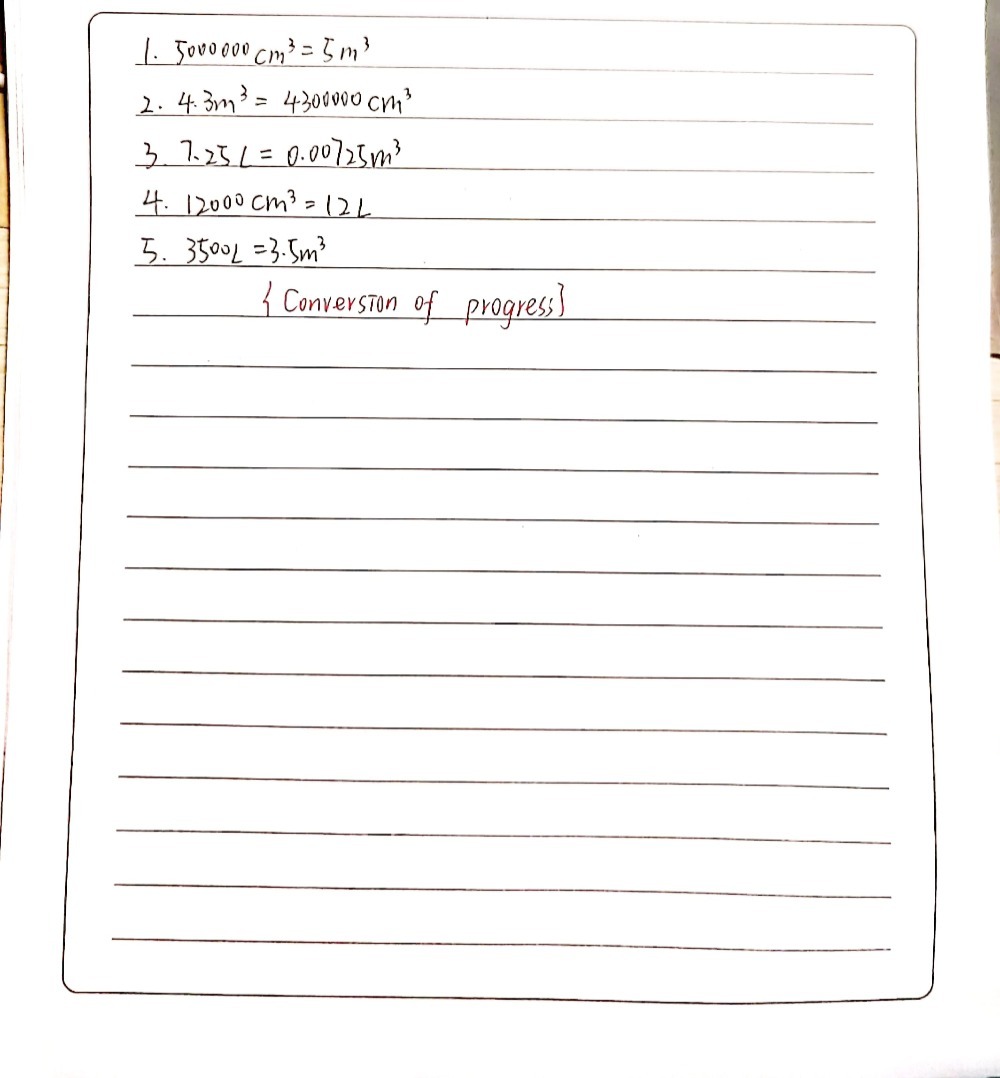 1. 5000000 cm³ = 5 m³
2. 4.3m³ = 4300000 cm³
3. 7.25 L = 0.00725m³
4. 12000 cm³ = 12 L
5. 3500L = 3.5m³
{ Conversion of progress}